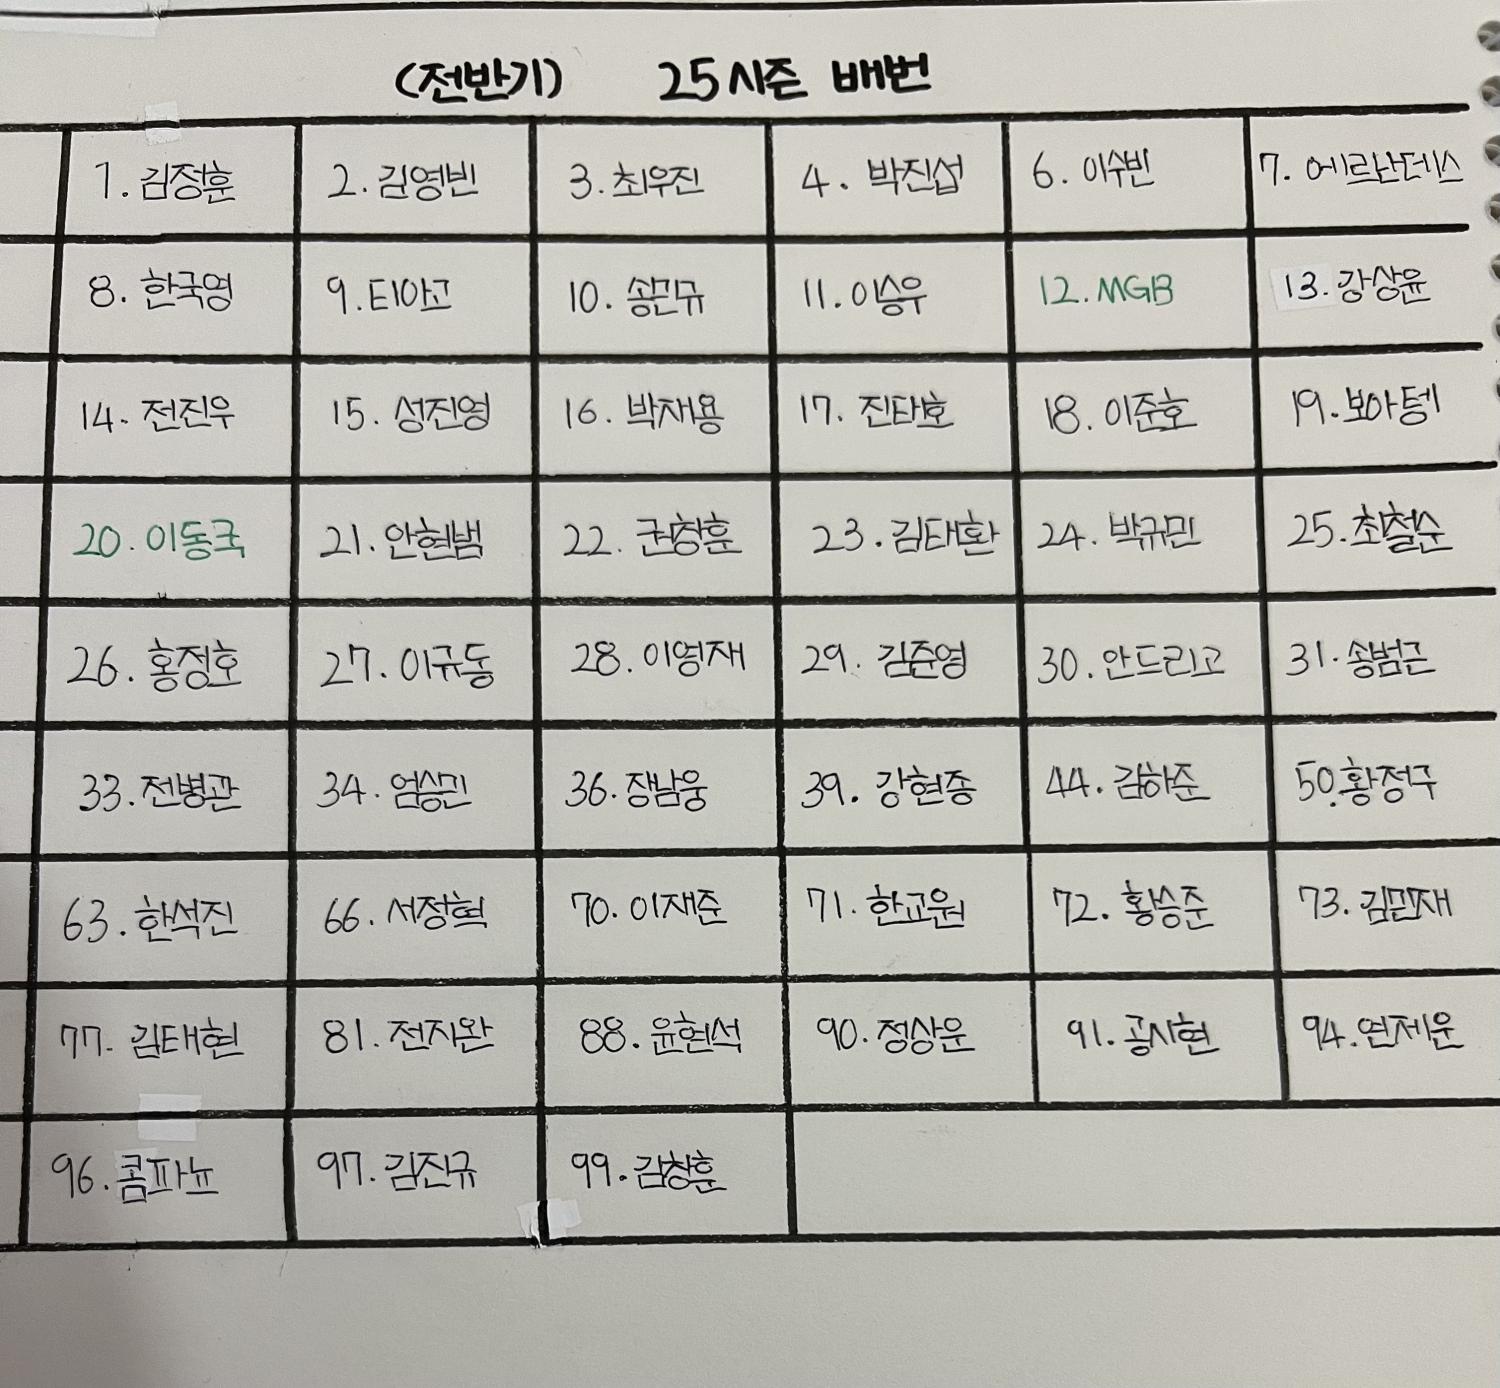 (전반기) 25시즌 배번
1. 김정훈 2. 김영빈 3. 최우진 4. 박진섭 6. 이수빈 7. 에르난데스
8. 한국영 9. 티아고 10. 송민규 11. 이승우 12. MGB 13. 강상윤
14. 전진우 15. 성진영 16. 박재용 17. 진태호 18. 이준호 19. 보아텡
20. 이동국 21. 안현범 22. 권창훈 23. 김태환 24. 박규민 25. 최철순
26. 홍정호 27. 이규동 28. 이영재 29. 김준영 30. 안드리고 31. 송범근
33. 전병관 34. 엄승민 36. 장남웅 39. 강현종 44. 김하준 50. 황정구
63. 한석진 66. 서정혁 70. 이재준 71. 한교원 72. 황승준 73. 김민재
77. 김태현 81. 전지완 88. 윤현석 90. 정상운 91. 공시현 94. 연제운
96. 콤파뇨 97. 김진규 99. 김창훈